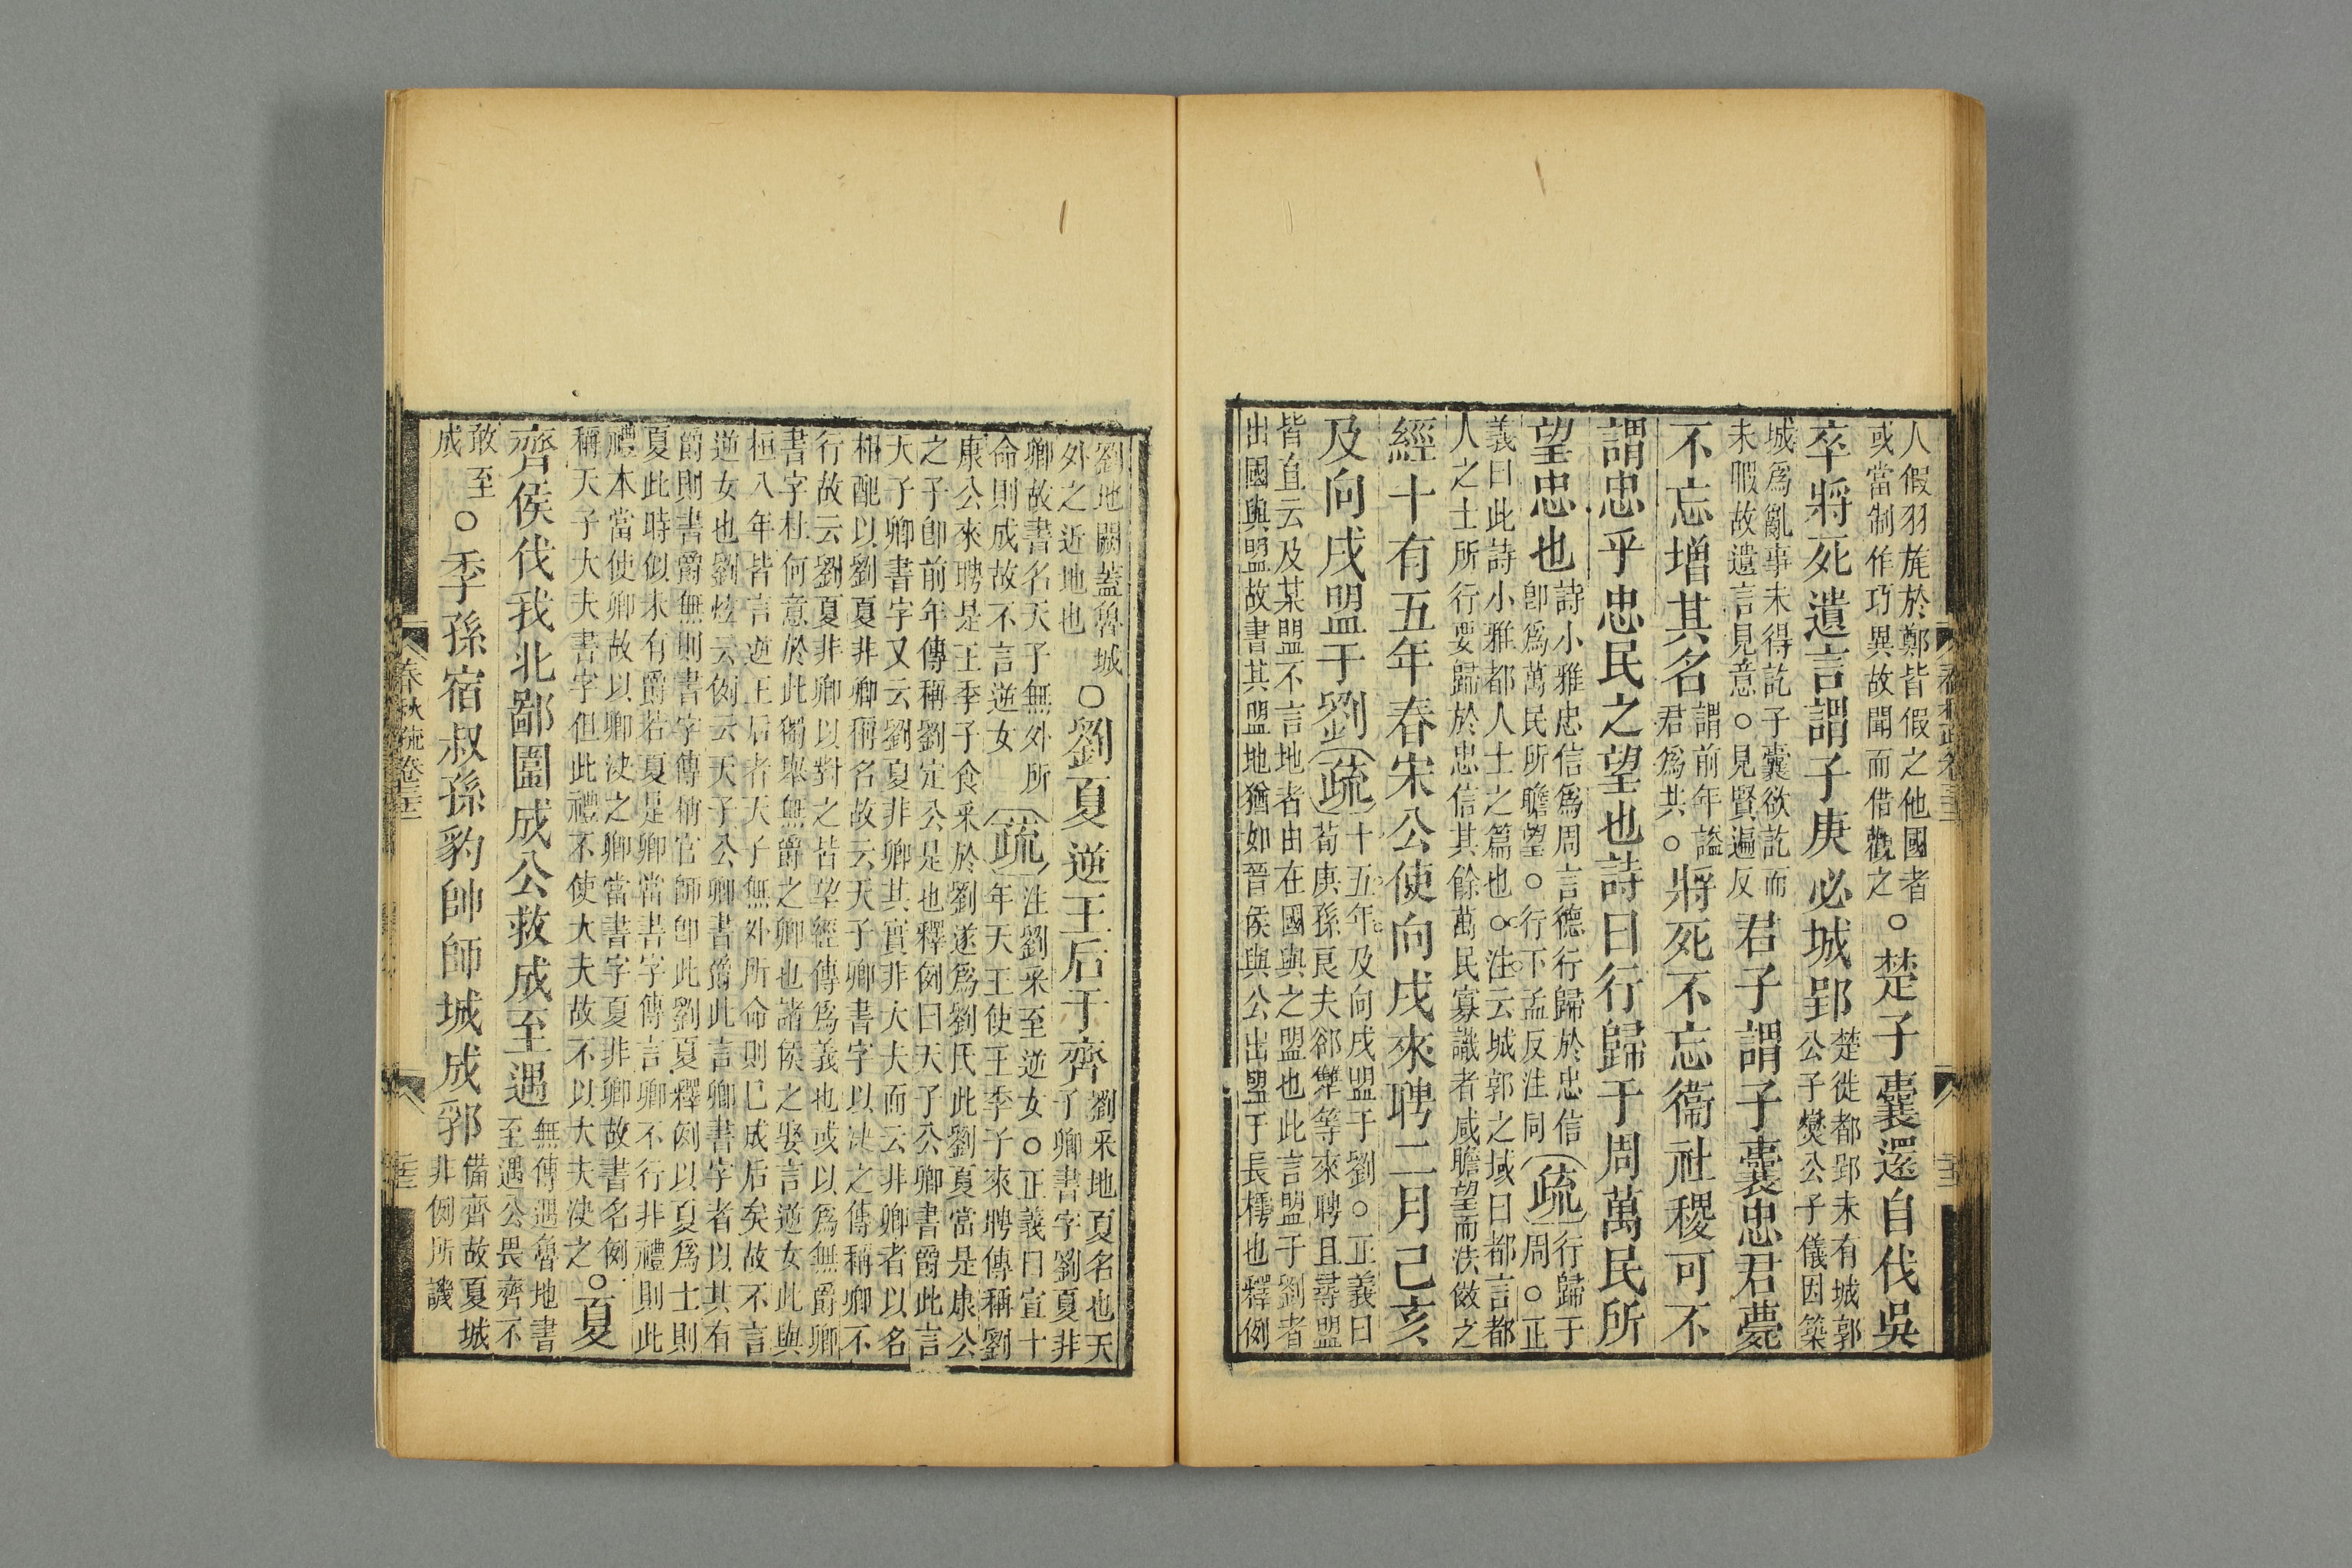 人假羽旄於鄭皆假之他國者
或當制作巧異故聞而借觀之
○楚子囊還自伐吳
卒將死遺言謂子庚必城郢
楚徙都郢未有城郭
公子燮公子儀因築
城爲亂事未得訖子囊欲訖而
未暇故遺言見意○見賢遍反
君子謂子囊忠君薨
不忘增其名
謂前年謚
君爲共○
將死不忘衞社稷可不
謂忠乎忠民之望也詩曰行歸于周萬民所
望忠也
詩小雅忠信爲周言德行歸於忠信
卽爲萬民所瞻望○行下孟反注同
疏
行歸于
周○正
義曰此詩小雅都人士之篇也○注云城郭之域曰都言都
人之士所行要歸於忠信其餘萬民寡識者咸瞻望而法傚之
經十有五年春宋公使向戌來聘二月己亥
及向戌盟于劉
疏
十五年及向戌盟于劉○正義曰
荀庚孫良夫郤犨等來聘且尋盟
皆直云及某盟不言地者由在國與之盟也此言盟于劉者
出國與盟故書其盟地猶如晉侯與公出盟于長樗也釋例
劉地闕蓋魯城
外之近地也
○劉夏逆王后于齊
劉采地夏名也天
子卿書字劉夏非
卿故書名天子無外所
命則成故不言逆女
疏
注劉采至逆女○正義曰宣十
年天王使王季子來聘傳稱劉
康公來聘是王季子食采於劉遂爲劉氏此劉夏當是康公
之子卽前年傳稱劉定公是也釋例曰天子公卿書爵此言
天子卿書字又云劉夏非卿其實非大夫而云非卿者以名
相配以劉夏非卿稱名故云天子卿書字以決之傳稱卿不
行故云劉夏非卿以對之皆望經傳爲義也或以爲無爵卿
書字杜何意於此獨舉無爵之卿也諸侯之娶言逆女此與
桓八年皆言逆王后者天子無外所命則已成后矣故不言
逆女也劉炫云例云天子公卿書爵此言卿書字者以其有
爵則書爵無則書字傳稱官師卽此劉夏釋例以夏爲士則
夏此時似未有爵若夏是卿當書字傳言卿不行非禮則此
禮本當使卿故以卿決之卿當書字夏非卿故書名例
稱天子大夫書字但此禮不使大夫故不以大夫決之
○夏
齊侯伐我北鄙圍成公救成至遇
無傳遇魯地書
至遇公畏齊不
敢至
成
○季孫宿叔孫豹帥師城成郛
備齊故夏城
非例所譏
春秋疏卷三十二